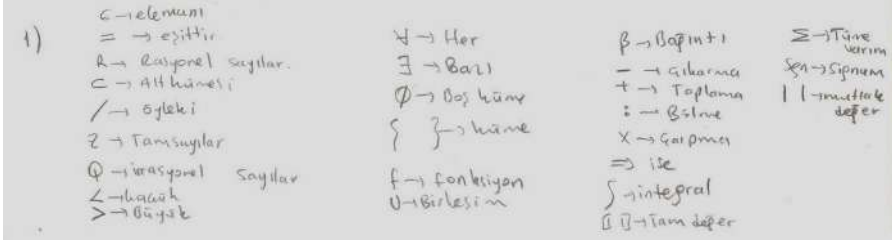 1)
∈ → elemanı
= → eşittir
R → Rasyonel sayılar.
⊂ → Alt kümesi
/ → öyleki
Z → Tamsayılar
Q → irrasyonel sayılar
< → küçük
> → Büyük
∀ → Her
∃ → Bazı
∅ → Boş küme
{ } → küme
f → fonksiyon
∪ → Birleşim
β → Bağıntı
− → Çıkarma
+ → Toplama
: → Bölme
X → Çarpma
⇒ ise
∫ → integral
[| |] → Tam değer
Σ → Tüme varım
Sgn → Signum
| | → mutlak değer